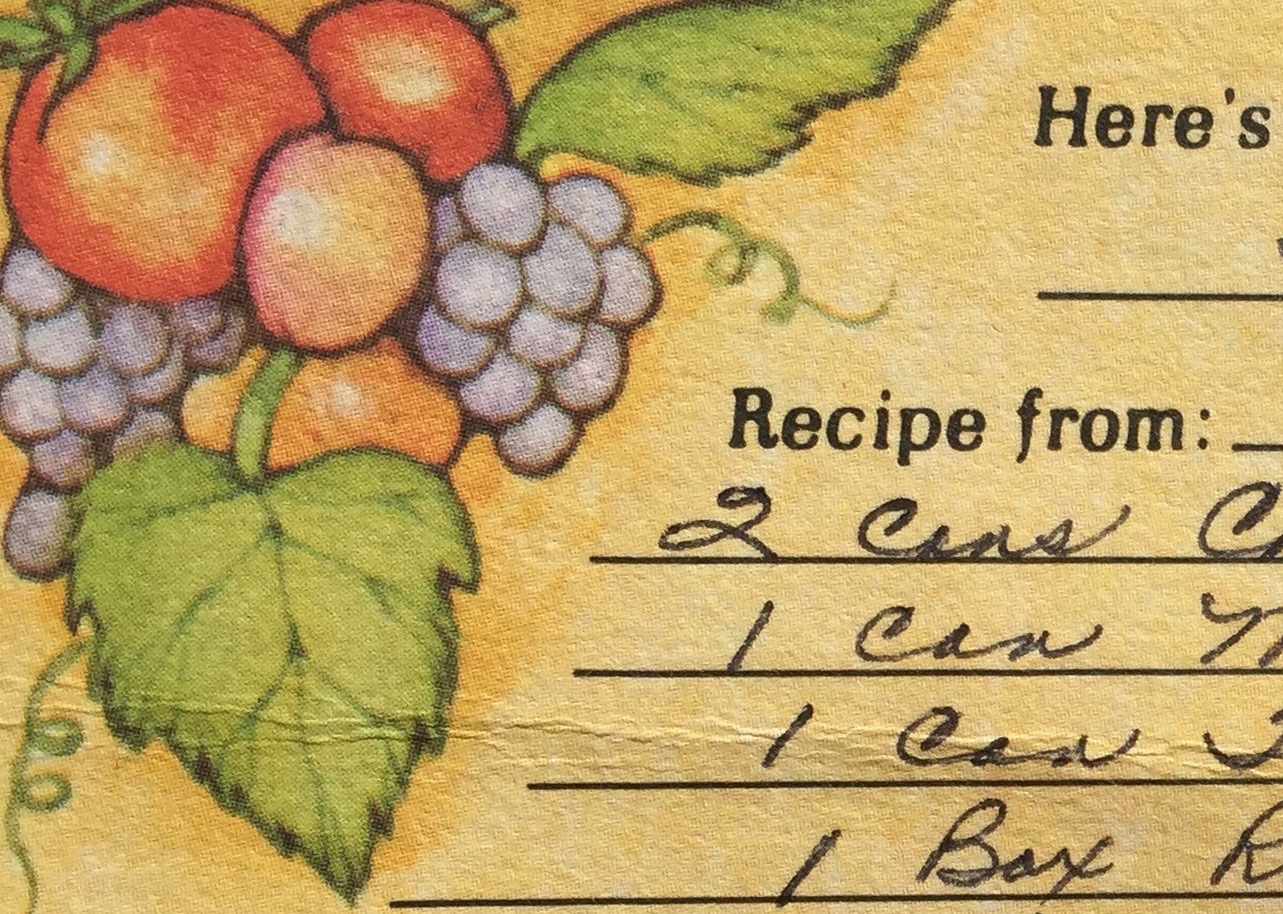 Here's
Recipe from:
2 cans
1 can
1 can
1 Box